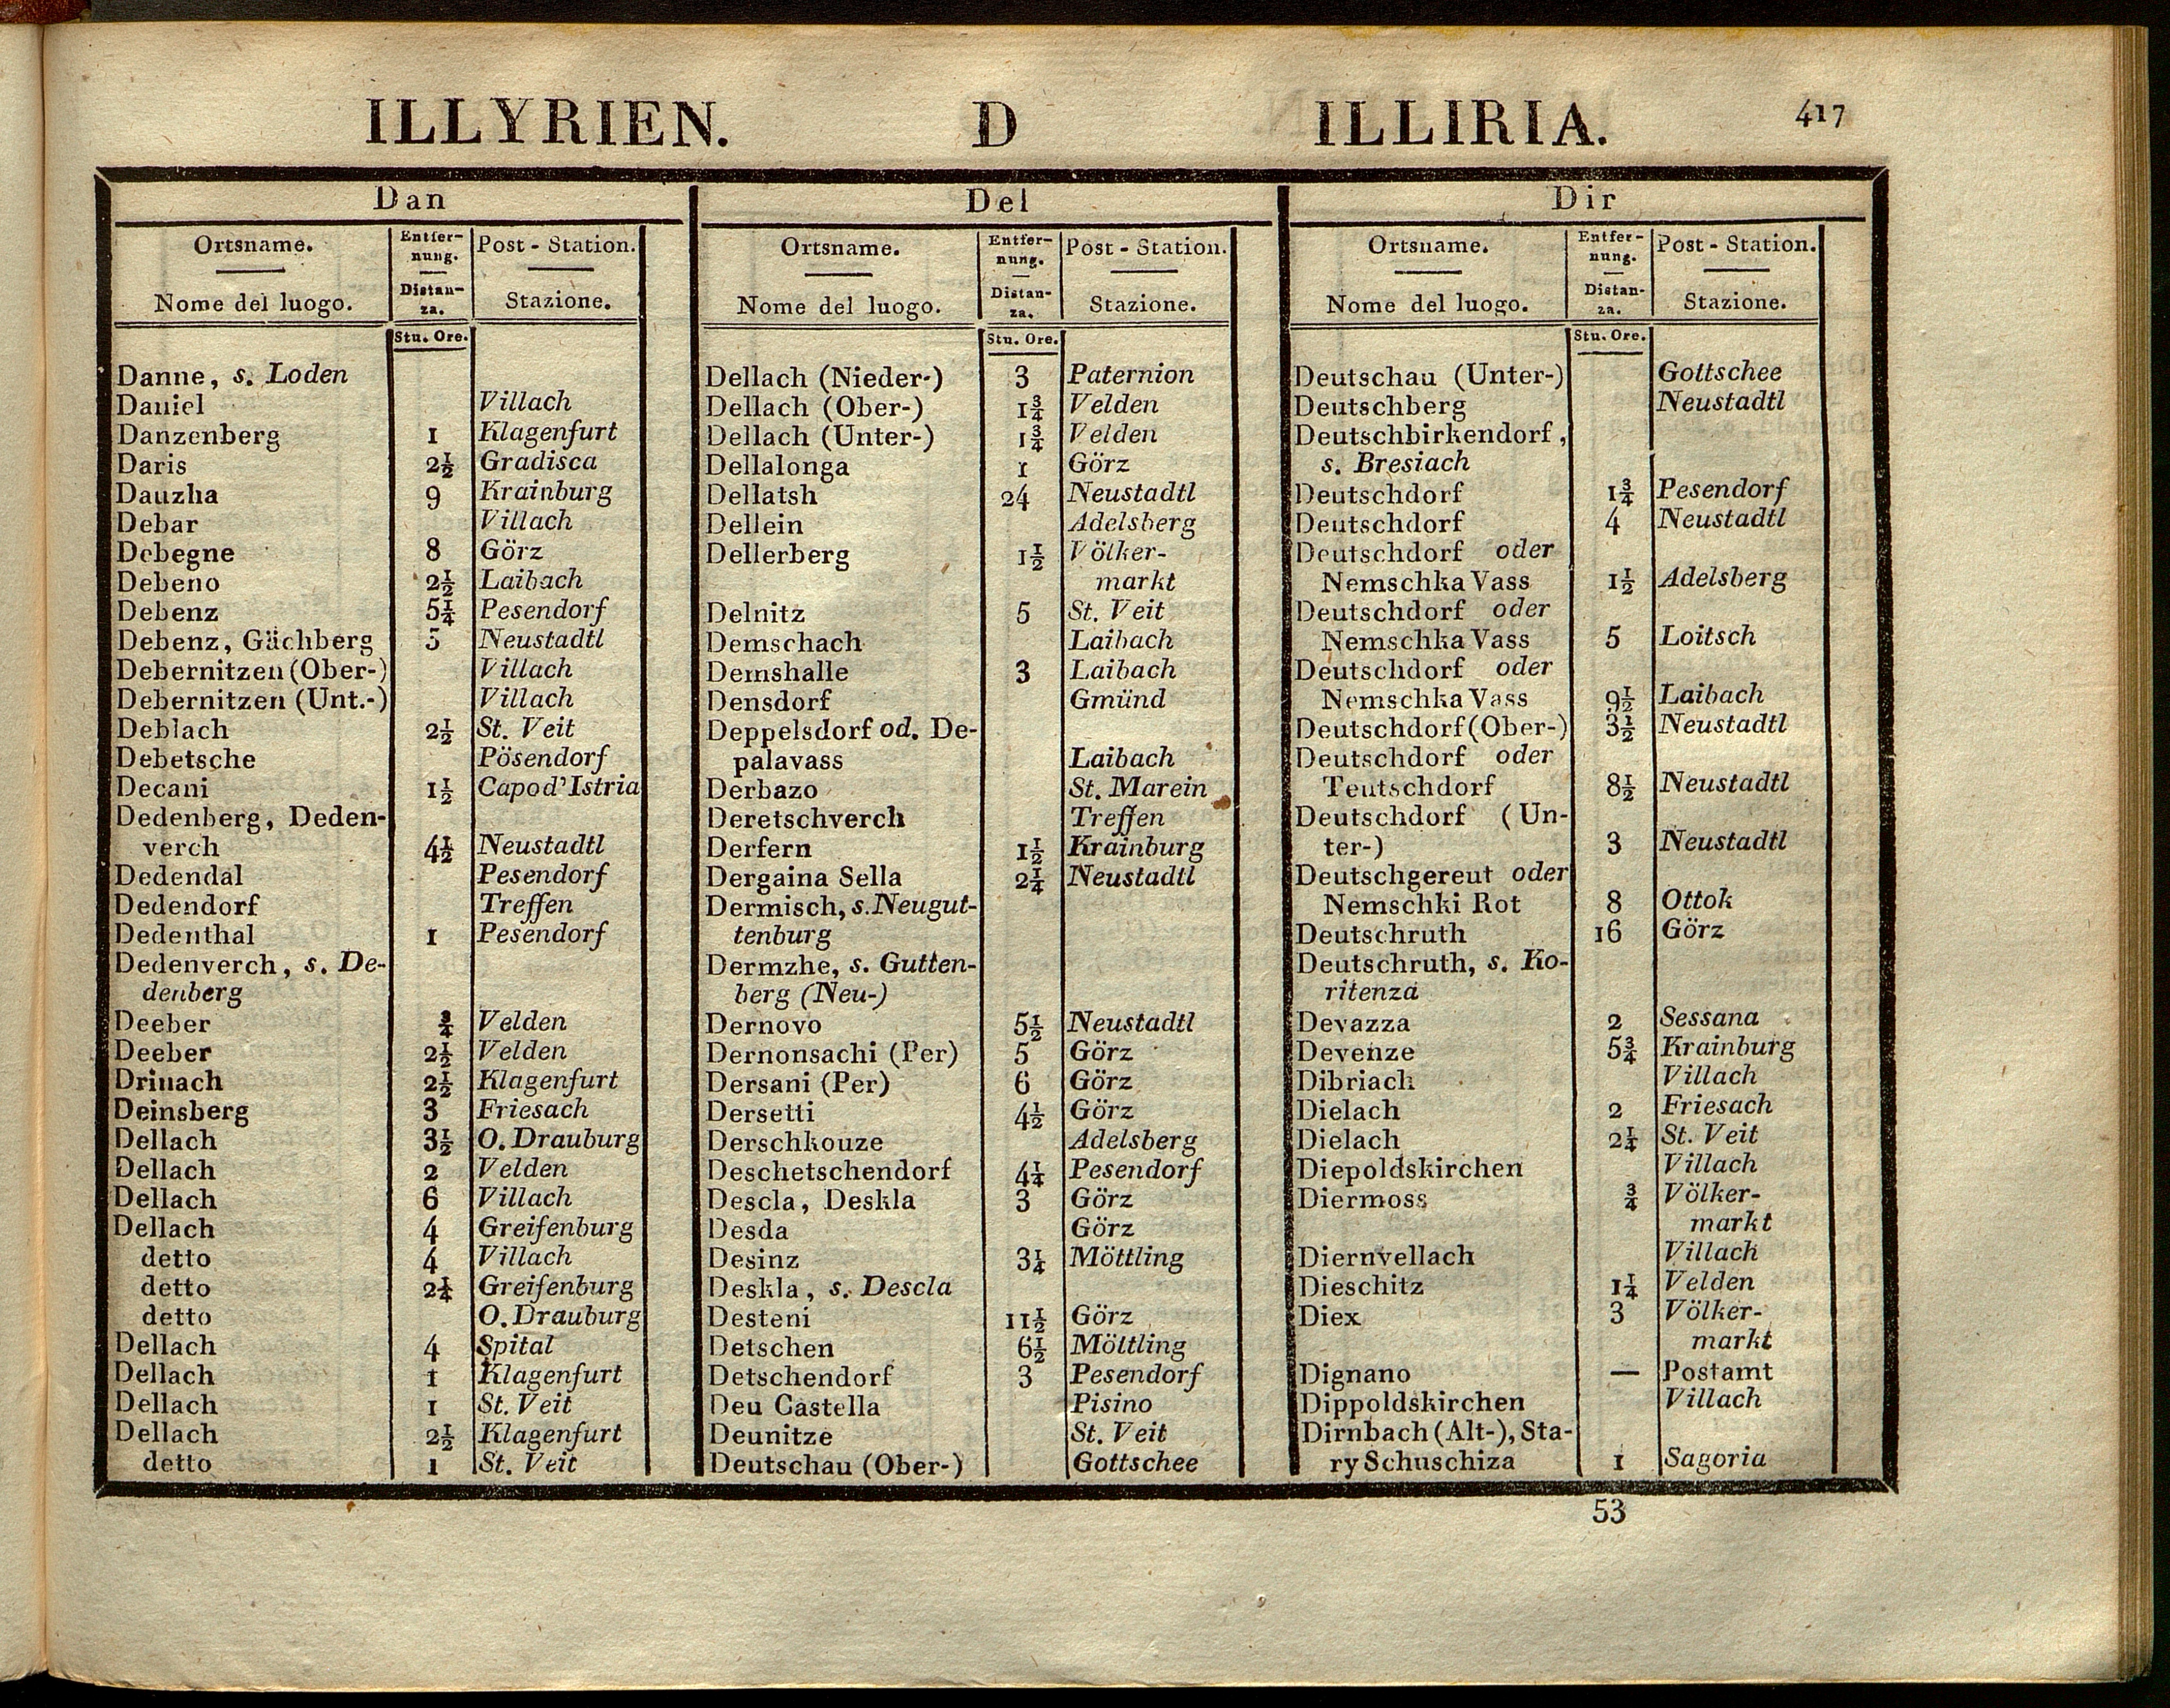 ILLYRIEN. D ILLIRIA. 417
Dan
Ortsname. Entfer- Post - Station.
nung.
Nome del luogo. Distan- Stazione.
za.
Stu. Ore.
Danne, s. Loden
Daniel Villach
Danzenberg 1 Klagenfurt
Daris 2½ Gradisca
Dauzha 9 Krainburg
Debar Villach
Debegne 8 Görz
Debeno 2½ Laibach
Debenz 5¼ Pesendorf
Debenz, Gächberg 5 Neustadtl
Debernitzen (Ober-) Villach
Debernitzen (Unt.-) Villach
Deblach 2½ St. Veit
Debetsche Pösendorf
Decani 1½ Capod'Istria
Dedenberg, Deden-
verch 4½ Neustadtl
Dedendal Pesendorf
Dedendorf Treffen
Dedenthal 1 Pesendorf
Dedenverch, s. De-
denberg
Deeber ¾ Velden
Deeber 2½ Velden
Drinach 2½ Klagenfurt
Deinsberg 3 Friesach
Dellach 3½ O. Drauburg
Dellach 2 Velden
Dellach 6 Villach
Dellach 4 Greifenburg
detto 4 Villach
detto 2¼ Greifenburg
detto O. Drauburg
Dellach 4 Spital
Dellach 1 Klagenfurt
Dellach 1 St. Veit
Dellach 2½ Klagenfurt
detto 1 St. Veit
Del
Ortsname. Entfer- Post - Station.
nung.
Nome del luogo. Distan- Stazione.
za.
Stu. Ore.
Dellach (Nieder-) 3 Paternion
Dellach (Ober-) 1¾ Velden
Dellach (Unter-) 1¾ Velden
Dellalonga 1 Görz
Dellatsh 24 Neustadtl
Dellein Adelsberg
Dellerberg 1½ Völker-
markt
Delnitz 5 St. Veit
Demschach Laibach
Demshalle 3 Laibach
Densdorf Gmünd
Deppelsdorf od. De-
palavass Laibach
Derbazo St. Marein
Deretschverch Treffen
Derfern 1½ Krainburg
Dergaina Sella 2¼ Neustadtl
Dermisch, s. Neugut-
tenburg
Dermzhe, s. Gutten-
berg (Neu-)
Dernovo 5½ Neustadtl
Dernonsachi (Per) 5 Görz
Dersani (Per) 6 Görz
Dersetti 4½ Görz
Derschkouze Adelsberg
Deschetschendorf 4¼ Pesendorf
Descla, Deskla 3 Görz
Desda Görz
Desinz 3¼ Möttling
Deskla, s. Descla
Desteni 11½ Görz
Detschen 6½ Möttling
Detschendorf 3 Pesendorf
Deu Castella Pisino
Deunitze St. Veit
Deutschau (Ober-) Gottschee
Dir
Ortsname. Entfer- Post - Station.
nung.
Nome del luogo. Distan- Stazione.
za.
Stu. Ore.
Deutschau (Unter-) Gottschee
Deutschberg Neustadtl
Deutschbirkendorf,
s. Bresiach
Deutschdorf 1¾ Pesendorf
Deutschdorf 4 Neustadtl
Deutschdorf oder
Nemschka Vass 1½ Adelsberg
Deutschdorf oder
Nemschka Vass 5 Loitsch
Deutschdorf oder
Nemschka Vass 9½ Laibach
Deutschdorf (Ober-) 3½ Neustadtl
Deutschdorf oder
Teutschdorf 8½ Neustadtl
Deutschdorf (Un-
ter-) 3 Neustadtl
Deutschgereut oder
Nemschki Rot 8 Ottok
Deutschruth 16 Görz
Deutschruth, s. Ko-
ritenza
Devazza 2 Sessana
Devenze 5¾ Krainburg
Dibriach Villach
Dielach 2 Friesach
Dielach 2¼ St. Veit
Diepoldskirchen Villach
Diermoss ¾ Völker-
markt
Diernvellach Villach
Dieschitz 1¼ Velden
Diex 3 Völker-
markt
Dignano — Postamt
Dippoldskirchen Villach
Dirnbach (Alt-), Sta-
ry Schuschiza 1 Sagoria
53